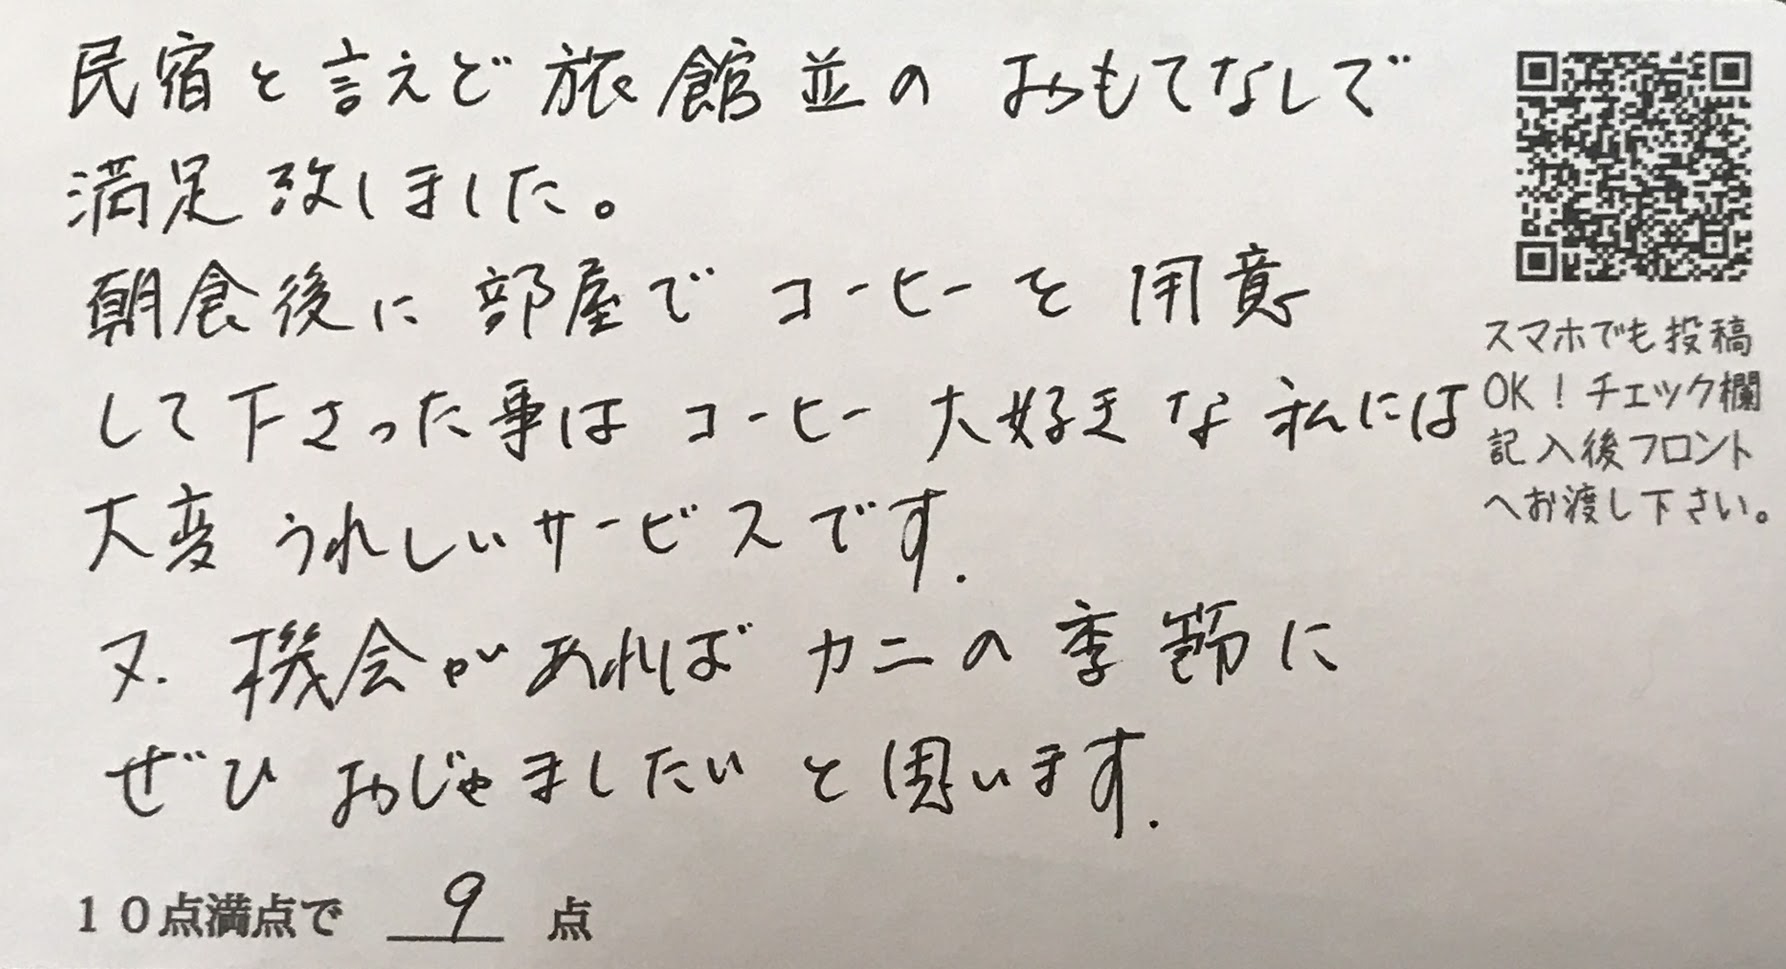 民宿と言えど旅館並の おもてなしで
満足致しました。
朝食後に部屋でコーヒーを用意
して下さった事はコーヒー大好きな私には
大変うれしいサービスです.
又.機会があればカニの季節に
ぜひおじゃましたいと思います.
10点満点で 9 点
スマホでも投稿
OK！チェック欄
記入後フロント
へお渡し下さい。